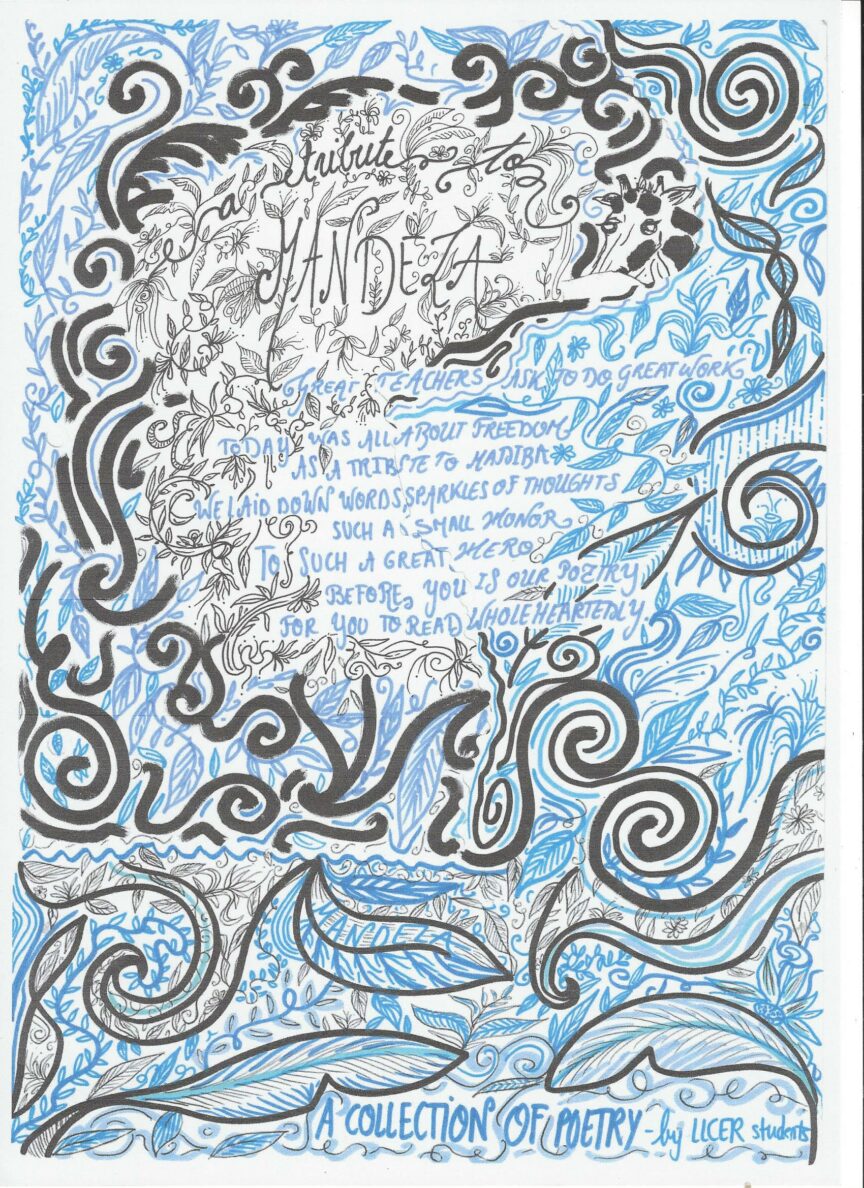 a tribute to
MANDELA
GREAT TEACHERS ASK TO DO GREAT WORK
TODAY WAS ALL ABOUT FREEDOM
AS A TRIBUTE TO MADIBA
WE LAID DOWN WORDS, SPARKLES OF THOUGHTS
SUCH A SMALL HONOR
TO SUCH A GREAT HERO
BEFORE YOU IS OUR POETRY
FOR YOU TO READ WHOLEHEARTEDLY
MANDELA
A COLLECTION OF POETRY - by LLCER students